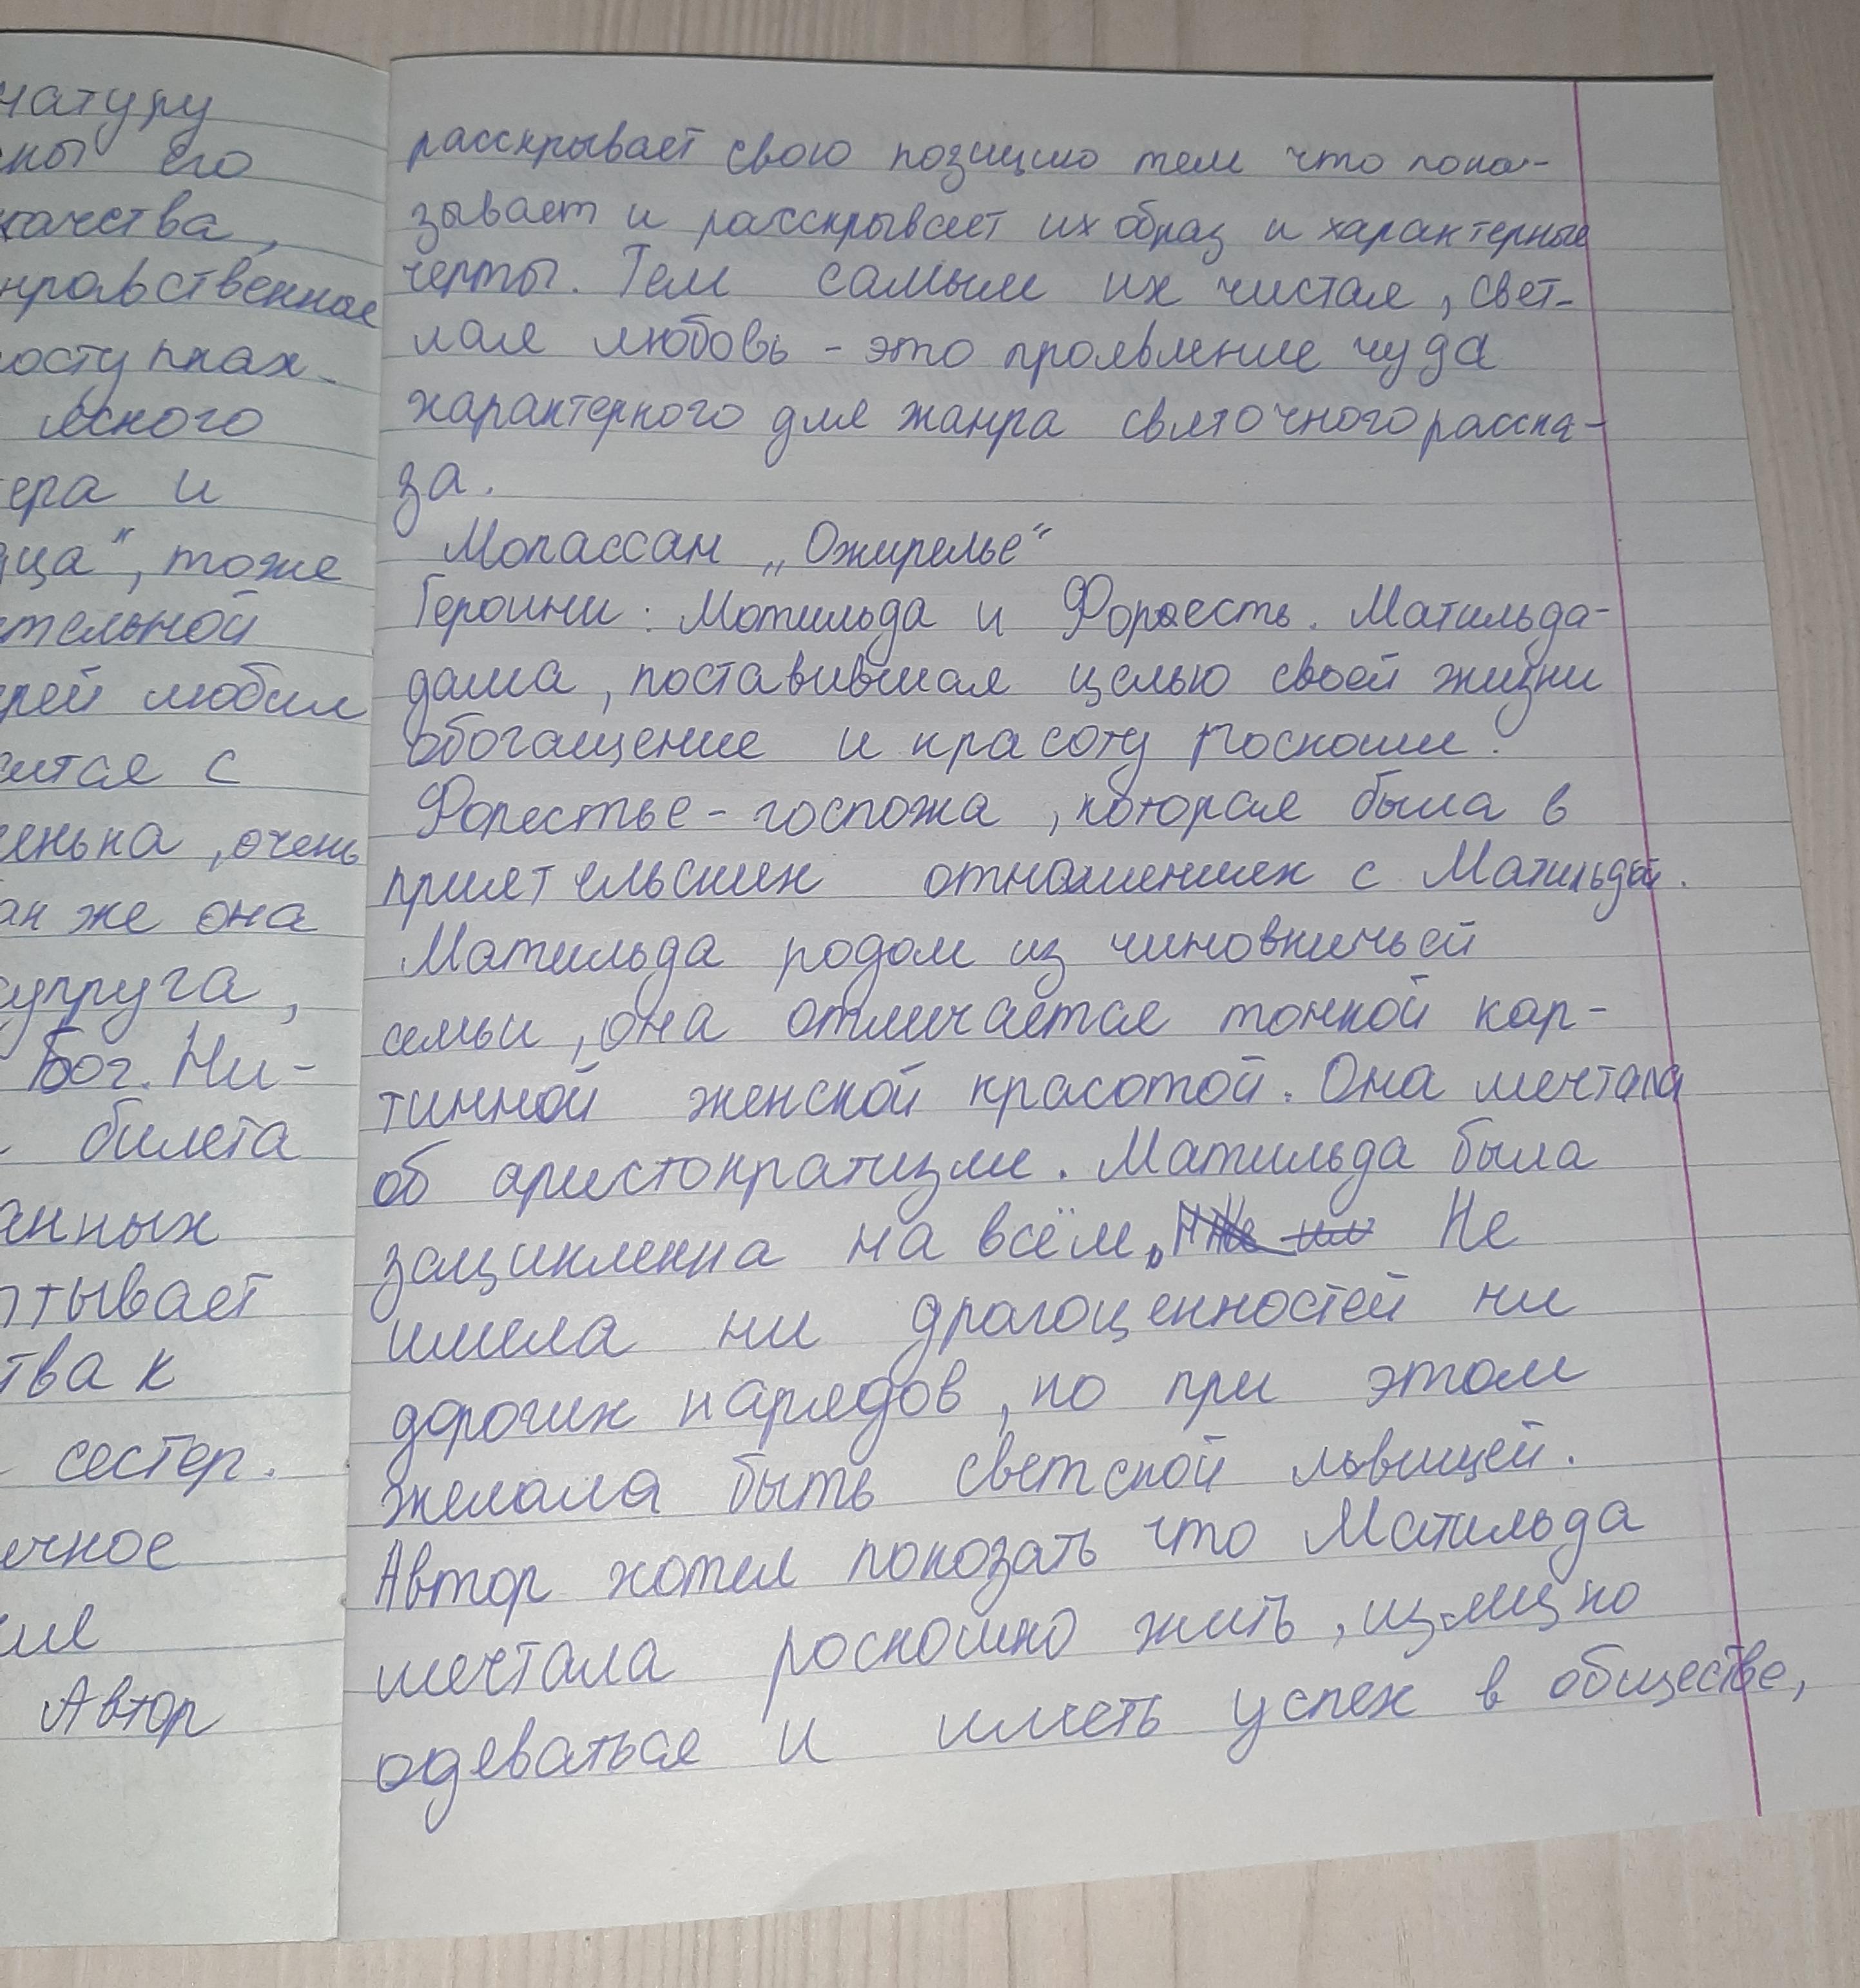 натуру
ны его
качества,
нравственное
поступках.
ясного
тера и
дца", тоже
ательной
рей любил
сится с
женька, очень
ак же она
супруга,
Бог. Ни-
билета
анных
ытывает
тва к
сестер.
ечное
ие
Автор
расскрывает свою позицию тем что пока-
зывает и расскрывает их образ и характерные
черты. Тем самым их чистая, свет-
лая любовь - это проявление чуда
характерного для жанра святочного расска-
за.
Мопассан „Ожирелье"
Героини: Мотильда и Форесть. Матильда-
дама, поставившая целью своей жизни
обогащение и красоту роскоши.
Форестье - госпожа, которая была в
приятельских отношениях с Матильдой.
Матильда родом из чиновничьей
семьи, она отличается тонкой кар-
тинной женской красотой. Она мечтала
об аристократизме. Матильда была
зациклена на всём, Не
имела ни драгоценностей ни
дорогих нарядов, но при этом
желала быть светской львицей.
Автор хотел показать что Матильда
мечтала роскошно жить, изящно
одеваться и иметь успех в обществе,